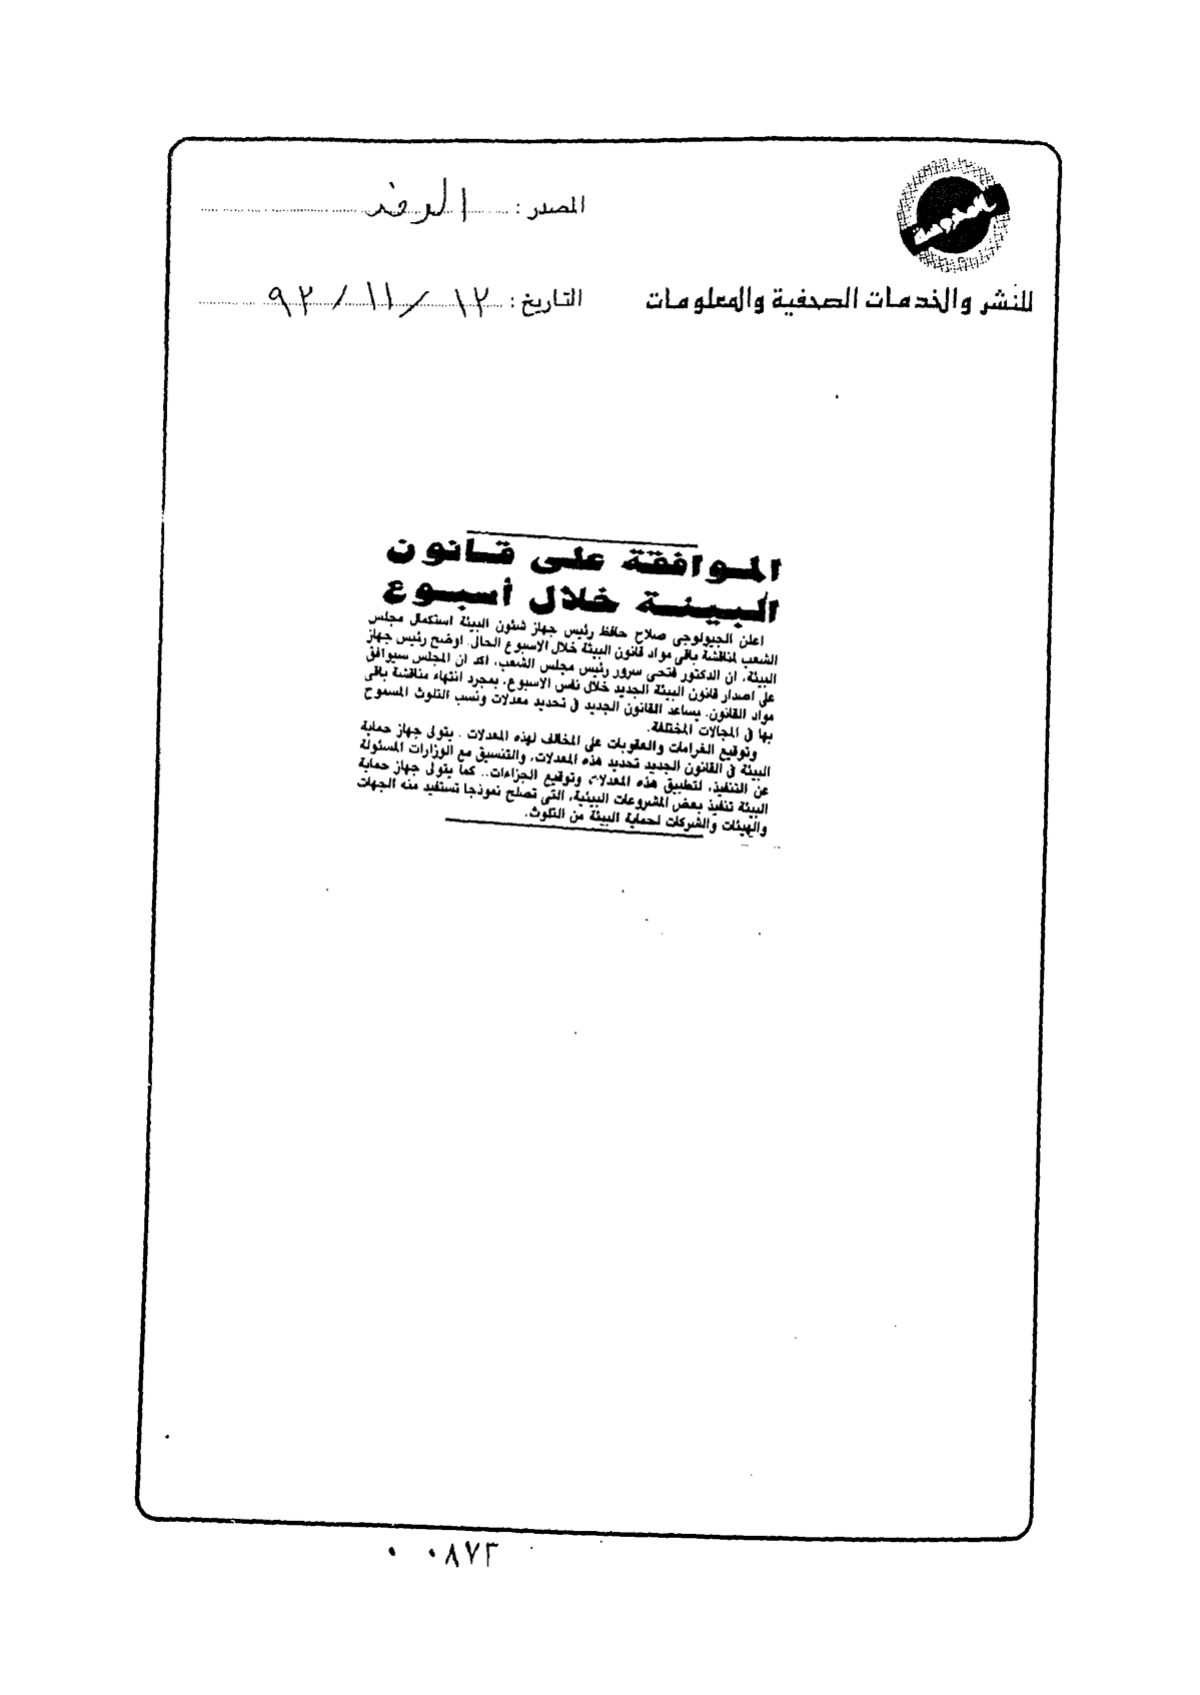 المصدر : الوفد
للنشر والخدمات الصحفية والمعلومات
التاريخ : ١٢ / ١١ / ٩٢
الموافقة على قانون
البيئة خلال أسبوع
اعلن الجيولوجى صلاح حافظ رئيس جهاز شئون البيئة استكمال مجلس
الشعب لمناقشة باقى مواد قانون البيئة خلال الاسبوع الحالى. اوضح رئيس جهاز
البيئة، ان الدكتور فتحى سرور رئيس مجلس الشعب، اكد ان المجلس سيوافق
على اصدار قانون البيئة الجديد خلال نفس الاسبوع، بمجرد انتهاء مناقشة باقى
مواد القانون. يساعد القانون الجديد فى تحديد معدلات ونسب التلوث المسموح
بها فى المجالات المختلفة.
وتوقيع الغرامات والعقوبات على المخالف لهذه المعدلات . يتولى جهاز حماية
البيئة فى القانون الجديد تحديد هذه المعدلات، والتنسيق مع الوزارات المسئولة
عن التنفيذ، لتطبيق هذه المعدلات وتوقيع الجزاءات.. كما يتولى جهاز حماية
البيئة تنفيذ بعض المشروعات البيئية، التى تصلح نموذجا تستفيد منه الجهات
والهيئات والشركات لحماية البيئة من التلوث.